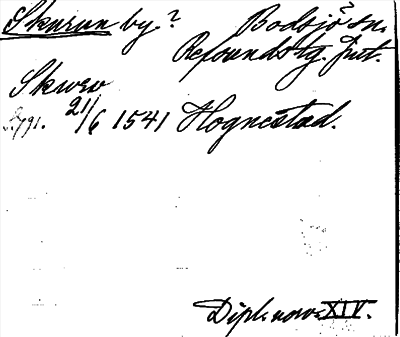 Skurun by? Bodsjö? sn.
Refsunds tg. Jmt.
Skurv
S. 791. 21/6 1541 Hognestad.
Dipl. norv. XIV.